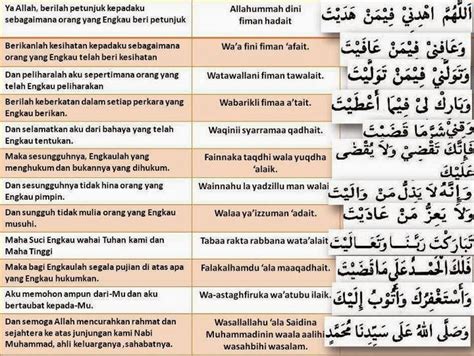 Ya Allah, berilah petunjuk kepadaku
sebagaimana orang yang Engkau beri petunjuk
Allahummah dini
fiman hadait
اَللَّهُمَّ اهْدِنِيْ فِيْمَنْ هَدَيْتَ
Berikanlah kesihatan kepadaku sebagaimana
orang yang Engkau telah beri kesihatan
Wa'a fini fiman 'afait.
وَعَافِنِيْ فِيْمَنْ عَافَيْتَ
Dan peliharalah aku sepertimana orang yang
telah Engkau peliharakan
Watawallani fiman tawalait.
وَتَوَلَّنِيْ فِيْمَنْ تَوَلَّيْتَ
Berilah keberkatan dalam setiap perkara yang
Engkau berikan.
Wabarikli fimaa a'tait.
وَبَارِكْ لِيْ فِيمَا أَعْطَيْتَ
Dan selamatkan aku dari bahaya yang telah
Engkau tentukan.
Waqinii syarramaa qadhait.
وَقِنِيْ شَرَّمَا قَضَيْتَ
Maka sesungguhnya, Engkaulah yang
menghukum dan bukannya yang dihukum.
Fainnaka taqdhi wala yuqdha
'alaik.
فَإِنَّكَ تَقْضِيْ وَلَا يُقْضَى
عَلَيْكَ
Dan sesungguhnya tidak hina orang yang
Engkau pimpin.
Wainnahu la yadzillu man walai
وَإِنَّهُ لَا يَذِلُّ مَنْ وَالَيْتَ
Dan sungguh tidak mulia orang yang Engkau
musuhi.
Walaa ya'izzuman 'adait.
وَلَا يَعِزُّ مَنْ عَادَيْتَ
Maha Suci Engkau wahai Tuhan kami dan
Maha Tinggi
Tabaa rakta rabbana wata'alait.
تَبَارَكْتَ رَبَّنَا وَتَعَالَيْتَ
Maka bagi Engkaulah segala pujian di atas apa
yang Engkau hukumkan.
Falakalhamdu 'ala maaqadhait.
فَلَكَ الْحَمْدُ عَلَى مَاقَضَيْتَ
Aku memohon ampun dari-Mu dan aku
bertaubat kepada-Mu.
Wa-astaghfiruka wa'atubu ilaik.
وَأَسْتَغْفِرُكَ وَأَتُوْبُ إِلَيْكَ
Dan semoga Allah mencurahkan rahmat dan
sejahtera ke atas junjungan kami Nabi
Muhammad, ahli keluarganya ,sahabatnya.
Wasallallahu 'ala Saidina
Muhammadinin waala aalihi
wasahbihi wasalam.
وَصَلَّى اللهُ عَلَى سَيِّدِنَا مُحَمَّدٍ